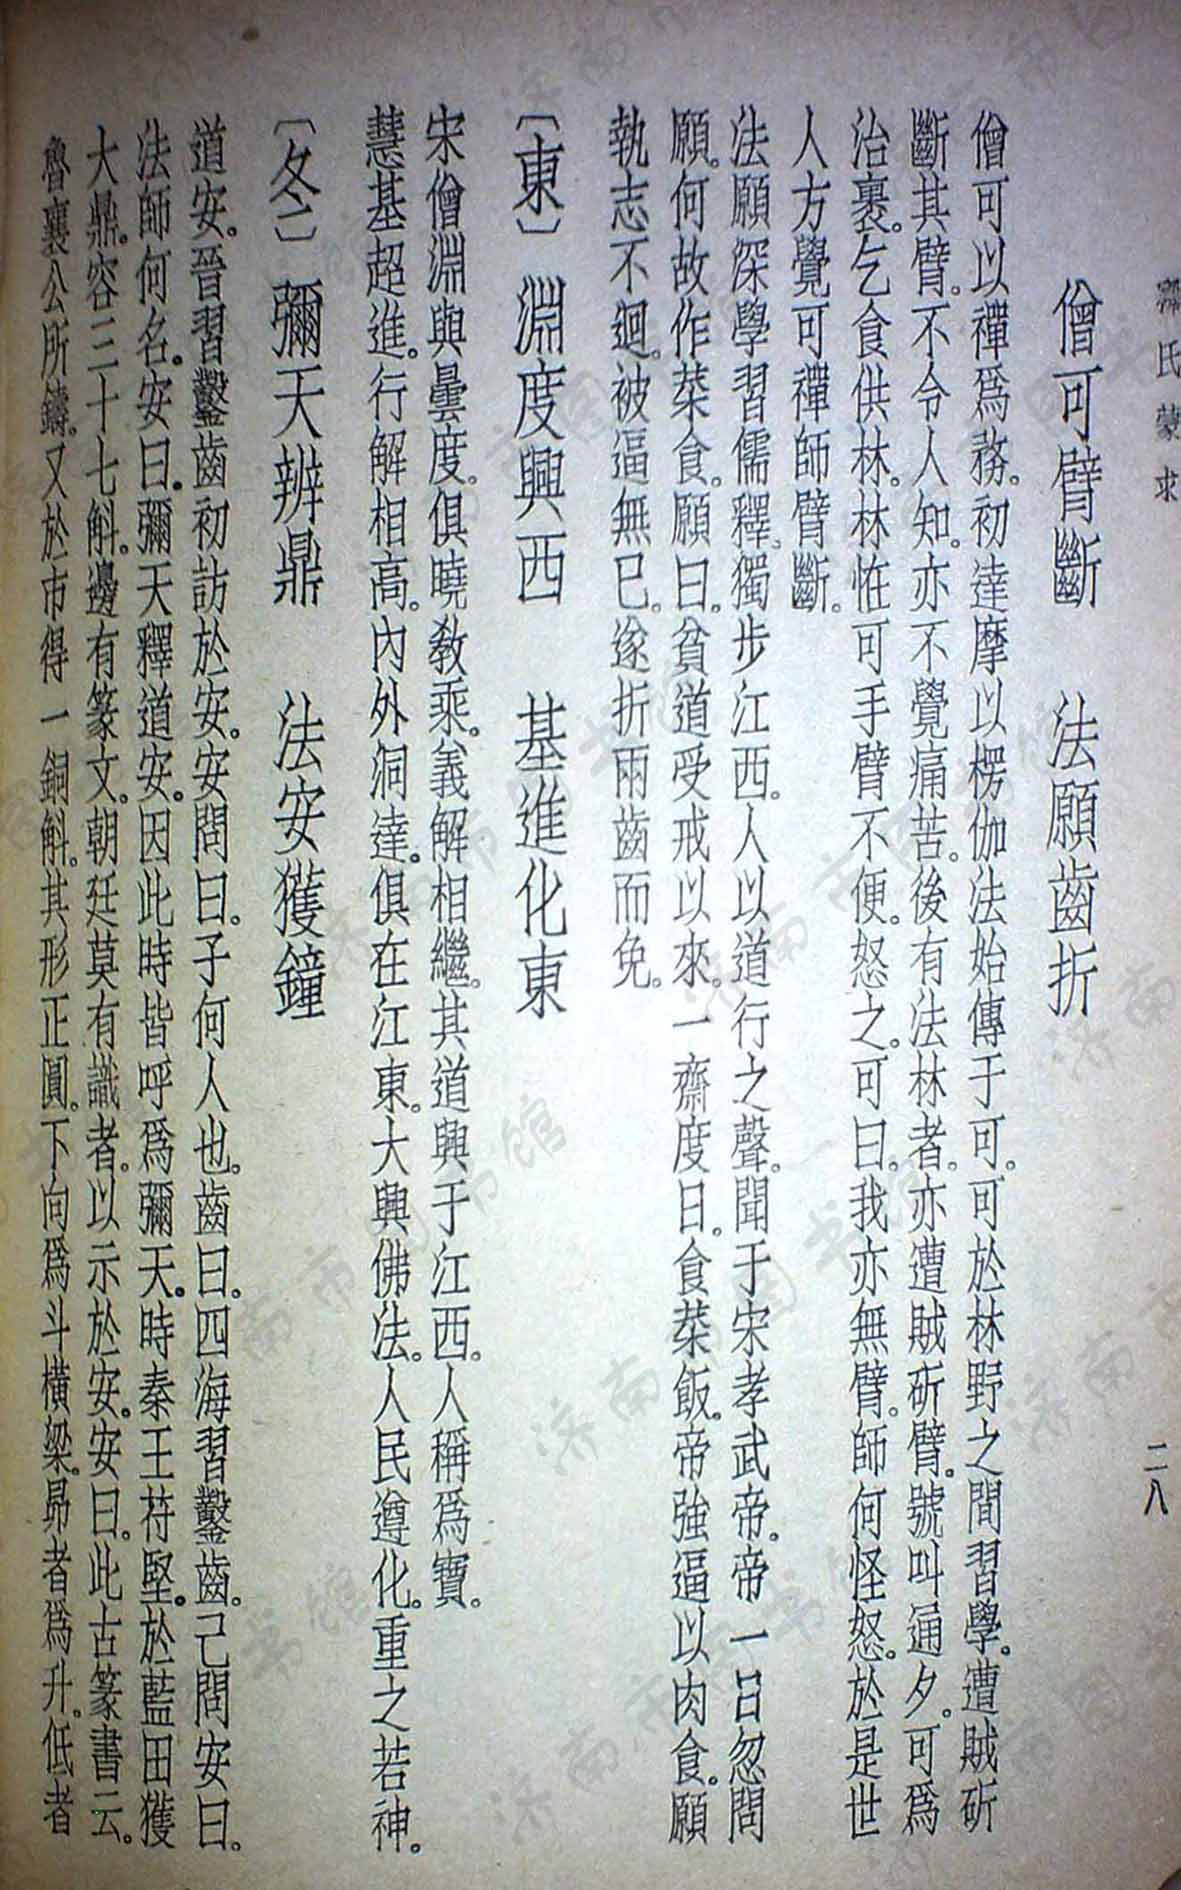 釋氏蒙求
二八
僧可臂斷　法願齒折
僧可以禪爲務。初達摩以楞伽法始傳于可。可於林野之間習學。遭賊斫
斷其臂。不令人知。亦不覺痛苦。後有法林者。亦遭賊斫臂。號叫通夕。可爲
治裹。乞食供林。林恠可手臂不便。怒之。可曰。我亦無臂。師何怪怒。於是世
人方覺可禪師臂斷。
法願深學習儒釋。獨步江西。人以道行之聲。聞于宋孝武帝。帝一日忽問
願。何故作菜食。願曰。貧道受戒以來。一齋度日。食菜飯。帝強逼以肉食。願
執志不迴。被逼無已。遂折兩齒而免。
〔東〕　淵度興西　基進化東
宋僧淵與曇度。俱曉教乘。義解相繼。其道興于江西。人稱爲寶。
慧基超進。行解相高。內外洞達。俱在江東。大興佛法。人民遵化。重之若神。
〔冬〕　彌天辨鼎　法安獲鐘
道安。晉習鑿齒初訪於安。安問曰。子何人也。齒曰。四海習鑿齒。己問安曰。
法師何名。安曰。彌天釋道安。因此時皆呼爲彌天。時秦王苻堅。於藍田獲
大鼎。容二十七斛。邊有篆文。朝廷莫有識者。以示於安。安曰。此古篆書云。
魯襄公所鑄。又於市得一銅斛。其形正圓。下向爲斗橫梁。昴者爲升。低者